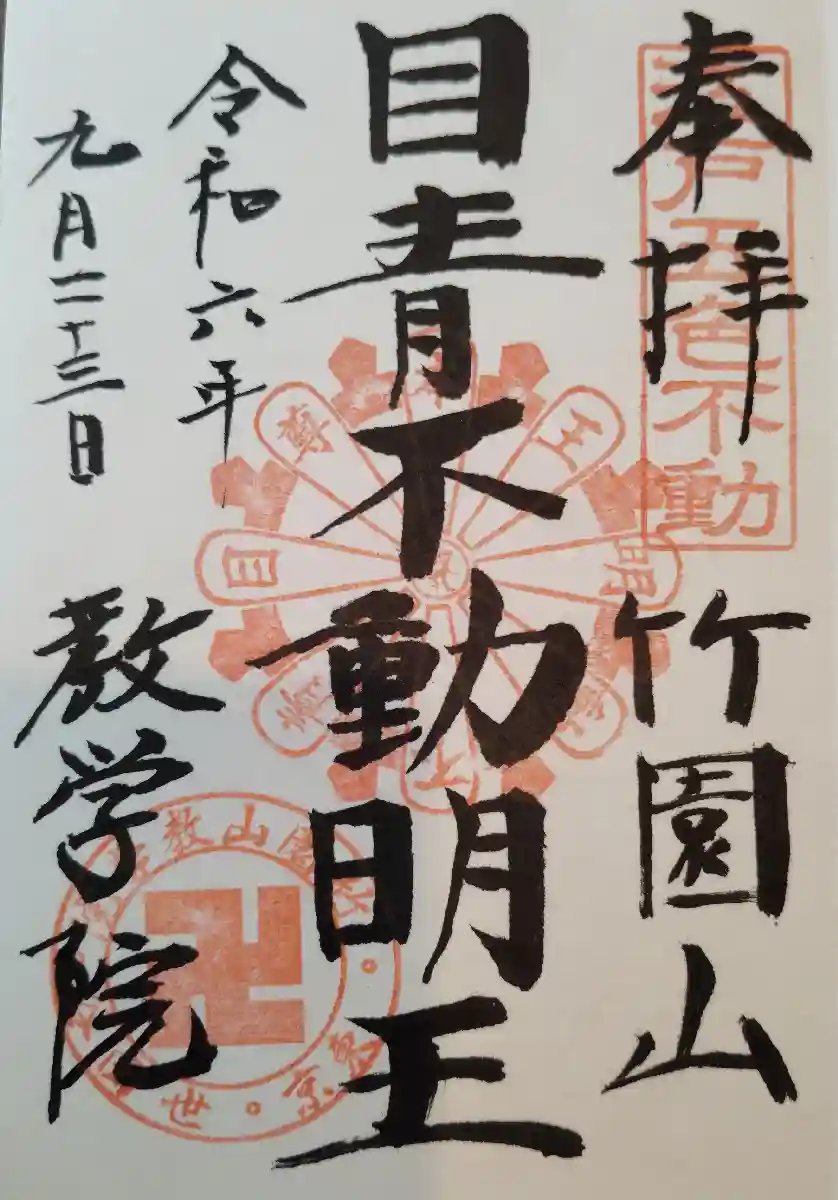 奉拝
竹園山
目青不動明王
令和六年
九月二十三日
教学院
江戸五色不動